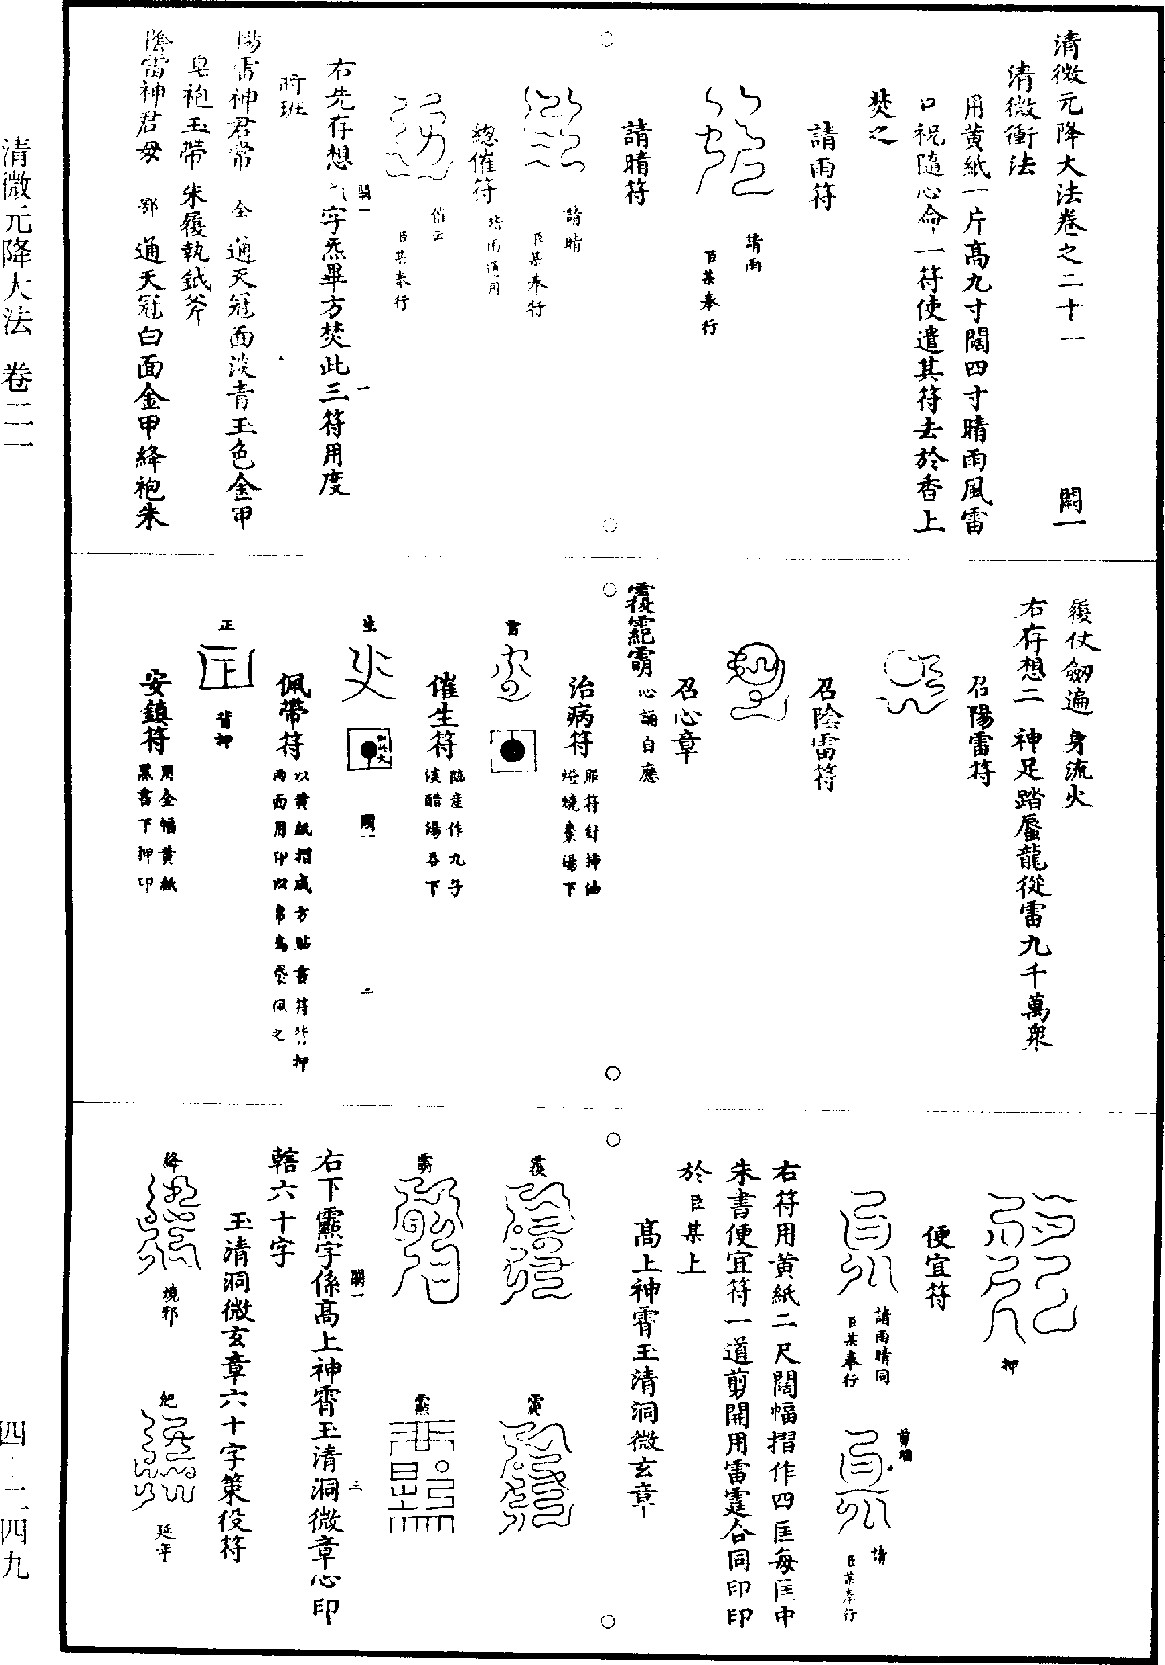 清微元降大法卷之二十一
闕一
清微衝法
用黃紙一片高九寸闊四寸晴雨風雷
口祝隨心命一符使遣其符去於香上
焚之
請雨符
請雨
臣某奉行
請晴符
請晴
臣某奉行
總催符
晴雨通用
催云
臣某奉行
右先存想
字炁畢方焚此三符用度
將班
陽雷神君常
全
通天冠面淡青玉色金甲
皂袍玉帶朱履執鉞斧
陰雷神君毋
鄂
通天冠白面金甲絳袍朱
履仗劍遍身流火
右存想二神足踏蜃龍從雷九千萬衆
召陽雷符
召陰雷符
召心章
心誦自應
治病符
催生符
臨產作九子
淡醋湯吞下
生
佩帶符
以黃紙摺成方貼書符背押
正
背押
安鎮符
用全幅黃紙
黑書下押印
二
押
便宜符
請雨晴同
臣某奉行
臣某奉行
右符用黃紙二尺闊幅摺作四匡每匡中
朱書便宜符一道剪開用雷霆合同印印
於臣某上
高上神霄玉清洞微玄章
右下靈字係高上神霄玉清洞微章心印
轄六十字
三
玉清洞微玄章六十字策役符
絳
境邪
紀
延年
清微元降大法 卷二一
四·二·四九